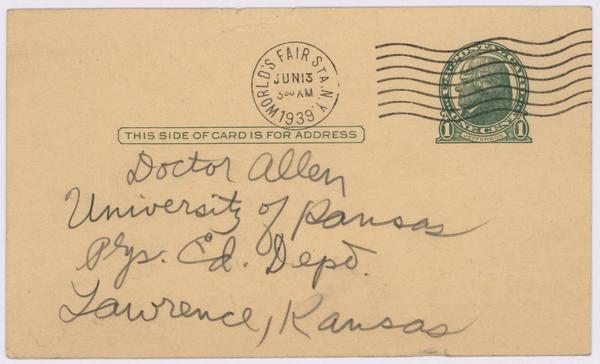 WORLD'S FAIR STA. N.Y.
JUN 13
3 00 AM
1939
THIS SIDE OF CARD IS FOR ADDRESS
1 ONE CENT 1
JEFFERSON
Doctor Allen
University of Kansas
Phys. Ed. Dept.
Lawrence, Kansas